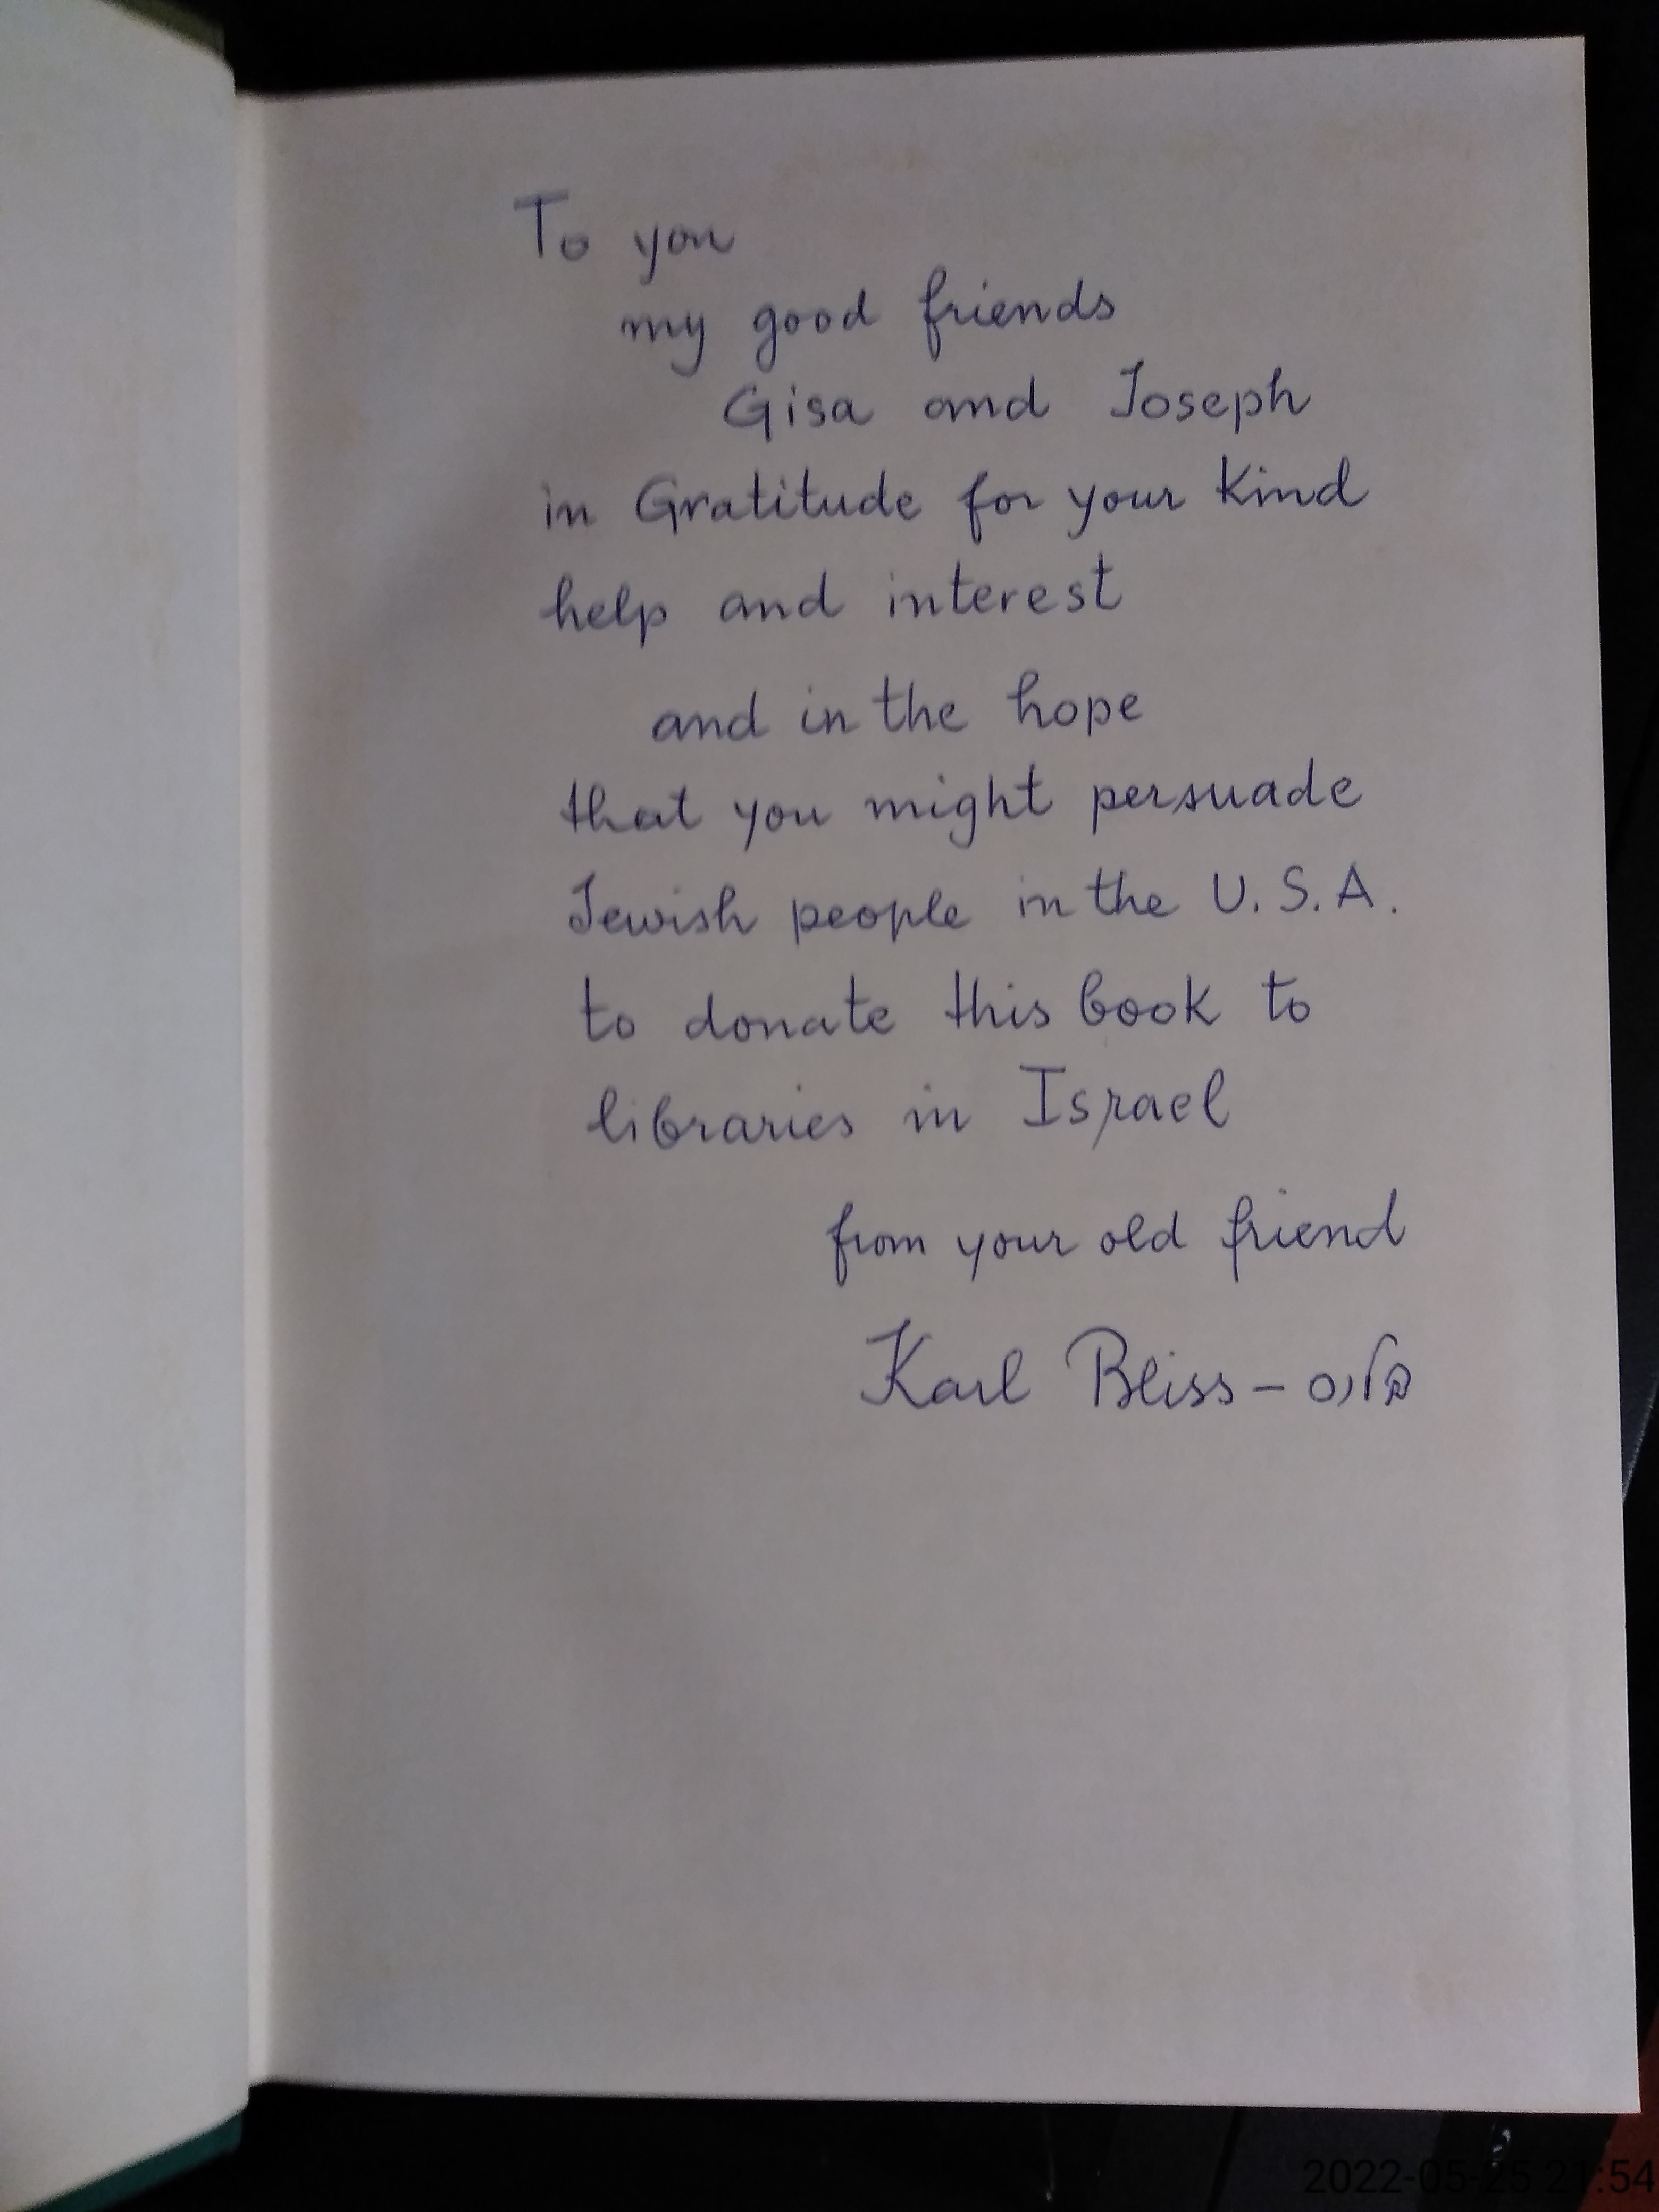 To you
my good friends
Gisa and Joseph
in Gratitude for your Kind
help and interest
and in the hope
that you might persuade
Jewish people in the U.S.A.
to donate this book to
libraries in Israel
from your old friend
Karl Bliss – בליס
2022-05-25 21:54